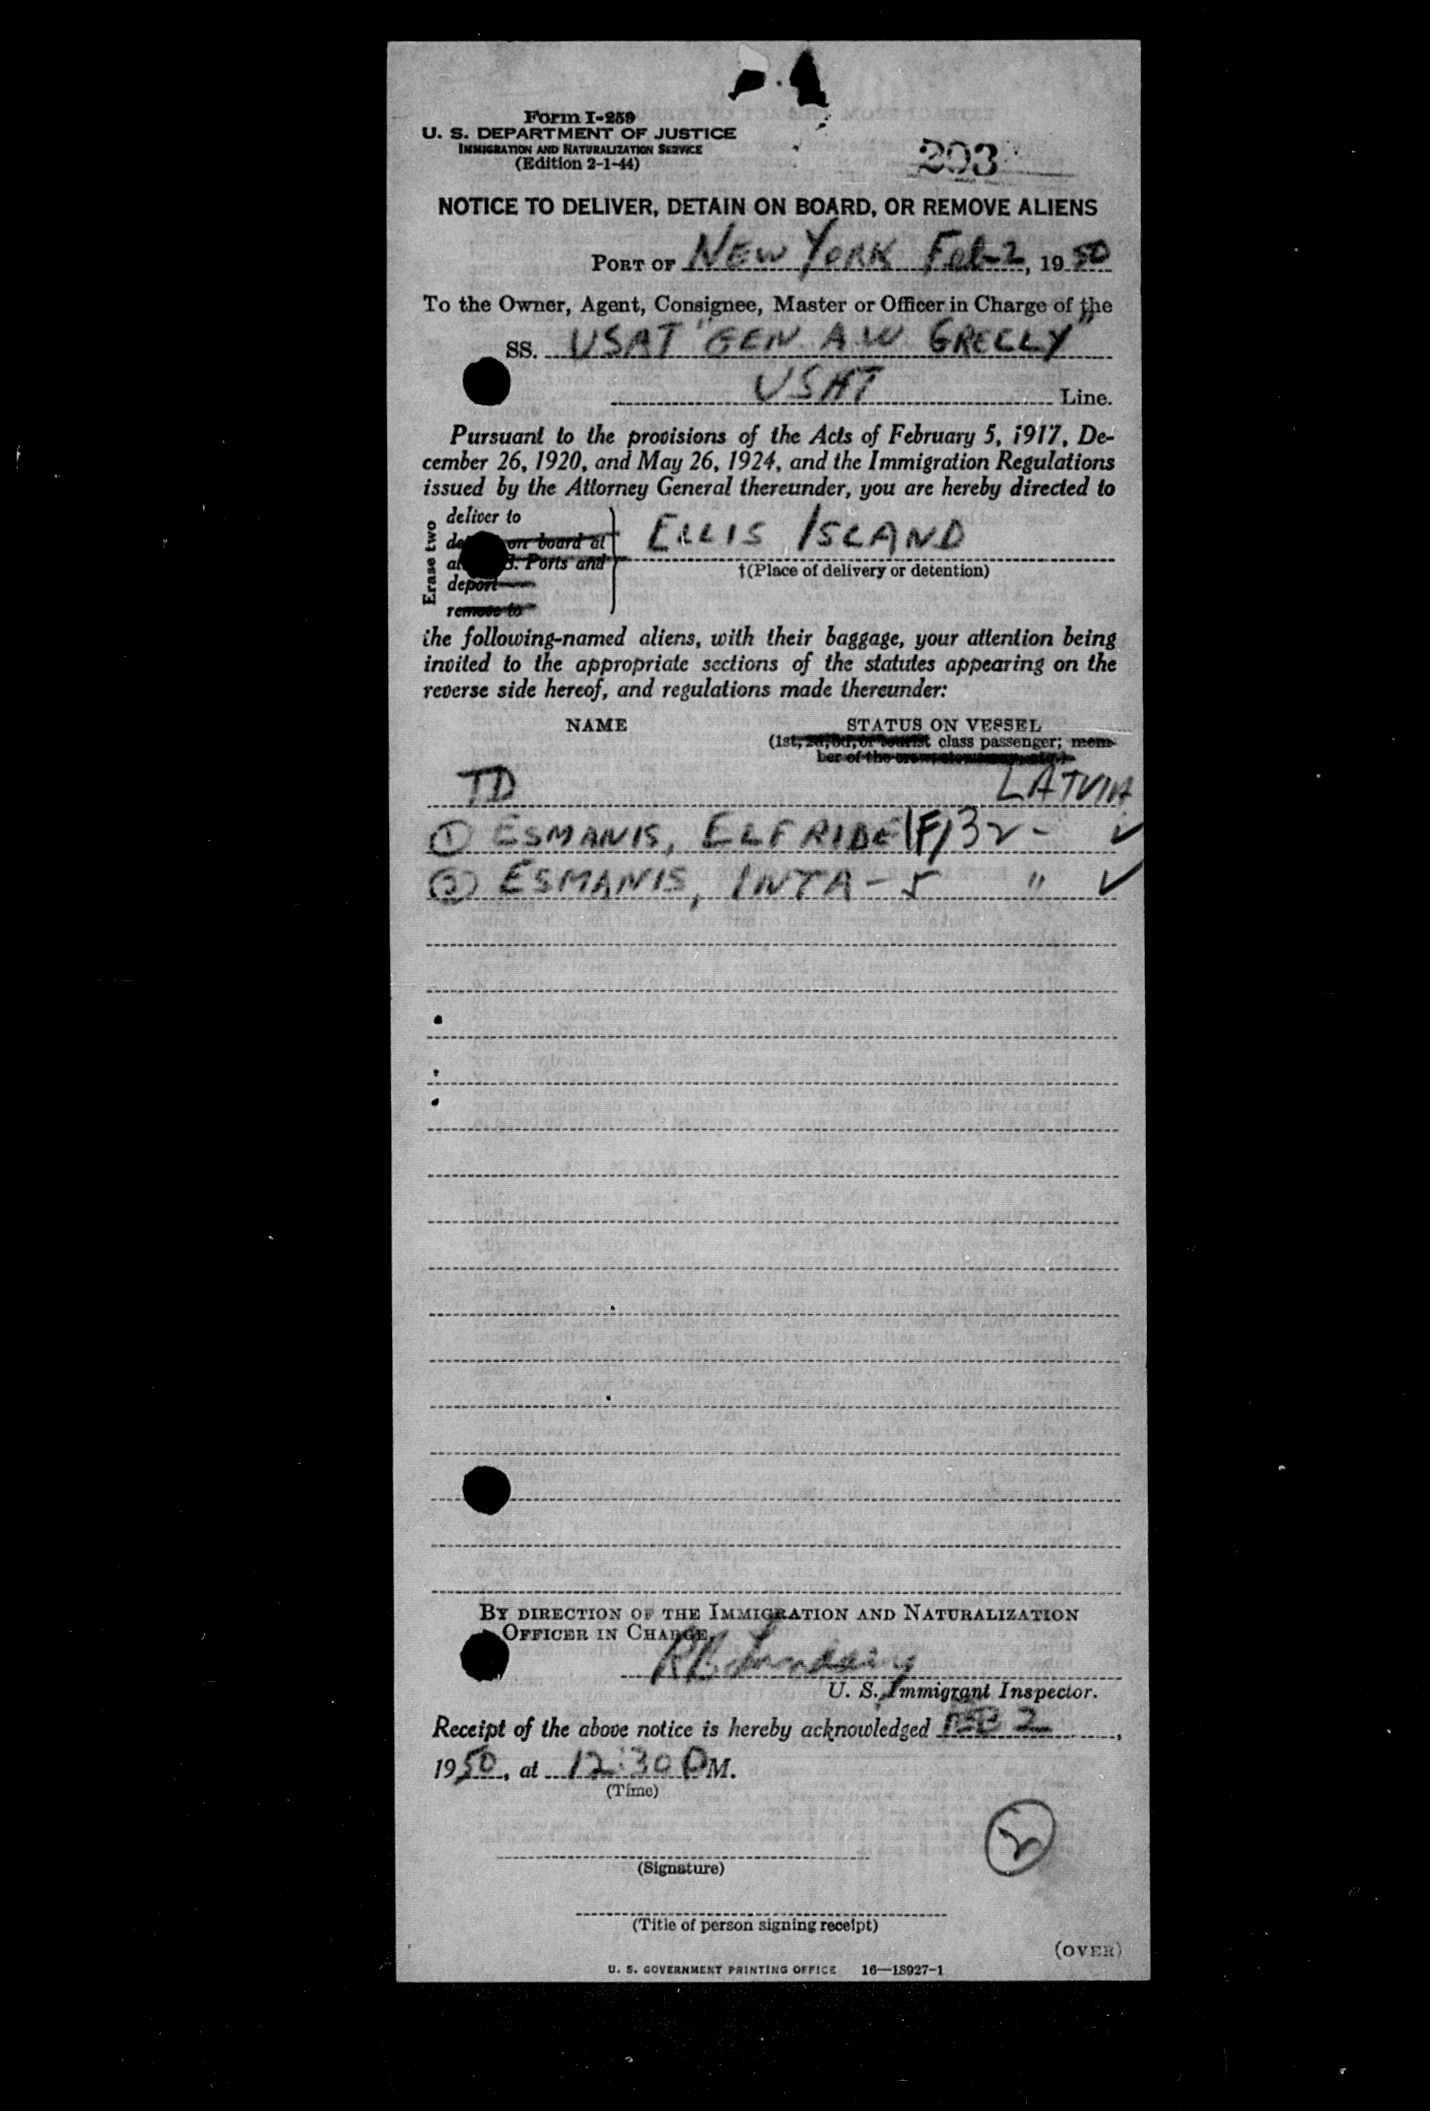 Form I-259
U. S. DEPARTMENT OF JUSTICE
IMMIGRATION AND NATURALIZATION SERVICE
(Edition 2-1-44)
203
NOTICE TO DELIVER, DETAIN ON BOARD, OR REMOVE ALIENS
PORT OF NEW YORK Feb 2, 1950
To the Owner, Agent, Consignee, Master or Officer in Charge of the
SS. USAT "GEN A W GREELY"
USAT Line.
Pursuant to the provisions of the Acts of February 5, 1917, De-
cember 26, 1920, and May 26, 1924, and the Immigration Regulations
issued by the Attorney General thereunder, you are hereby directed to
Erase two
deliver to
on board at
Ports and
deport
remove to
ELLIS ISLAND
†(Place of delivery or detention)
the following-named aliens, with their baggage, your attention being
invited to the appropriate sections of the statutes appearing on the
reverse side hereof, and regulations made thereunder:
NAME STATUS ON VESSEL
(1st, 2d, 3d, or tourist class passenger; mem-
ber of the crew,
TD LATVIA
① ESMANIS, ELFRIDE (F) 32 - ✓
② ESMANIS, INTA - 5 " ✓
BY DIRECTION OF THE IMMIGRATION AND NATURALIZATION
OFFICER IN CHARGE,
U. S. Immigrant Inspector.
Receipt of the above notice is hereby acknowledged FEB 2,
1950, at 12:30 PM.
(Time)
2
(Signature)
(Title of person signing receipt)
(OVER)
U. S. GOVERNMENT PRINTING OFFICE 16—18927-1